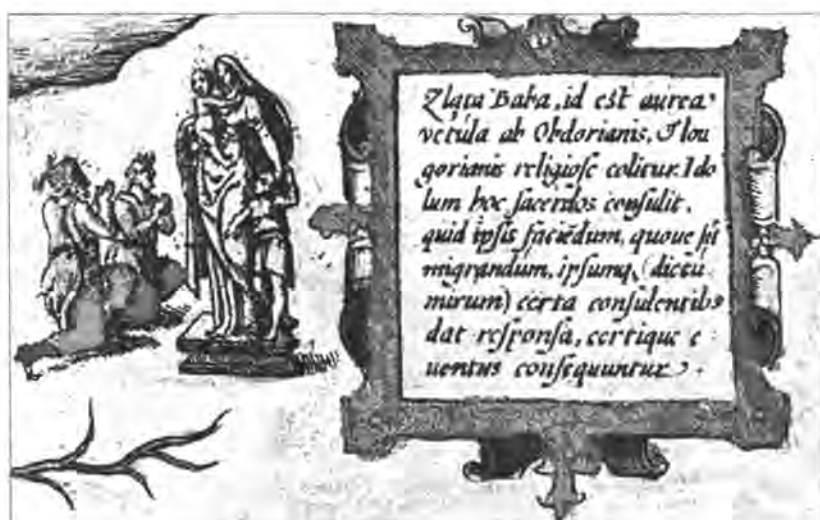 Zlata Baba, id est aurea
vetula ab Obdorianis, & Iou
gorianis religiose colitur. Ido
lum hoc sacerdos consulit,
quid ipsis faciēdum, quove sit
migrandum, ipsumq, (dictu
mirum) certa consulentib9
dat responsa, certique e
uentus consequuntur.